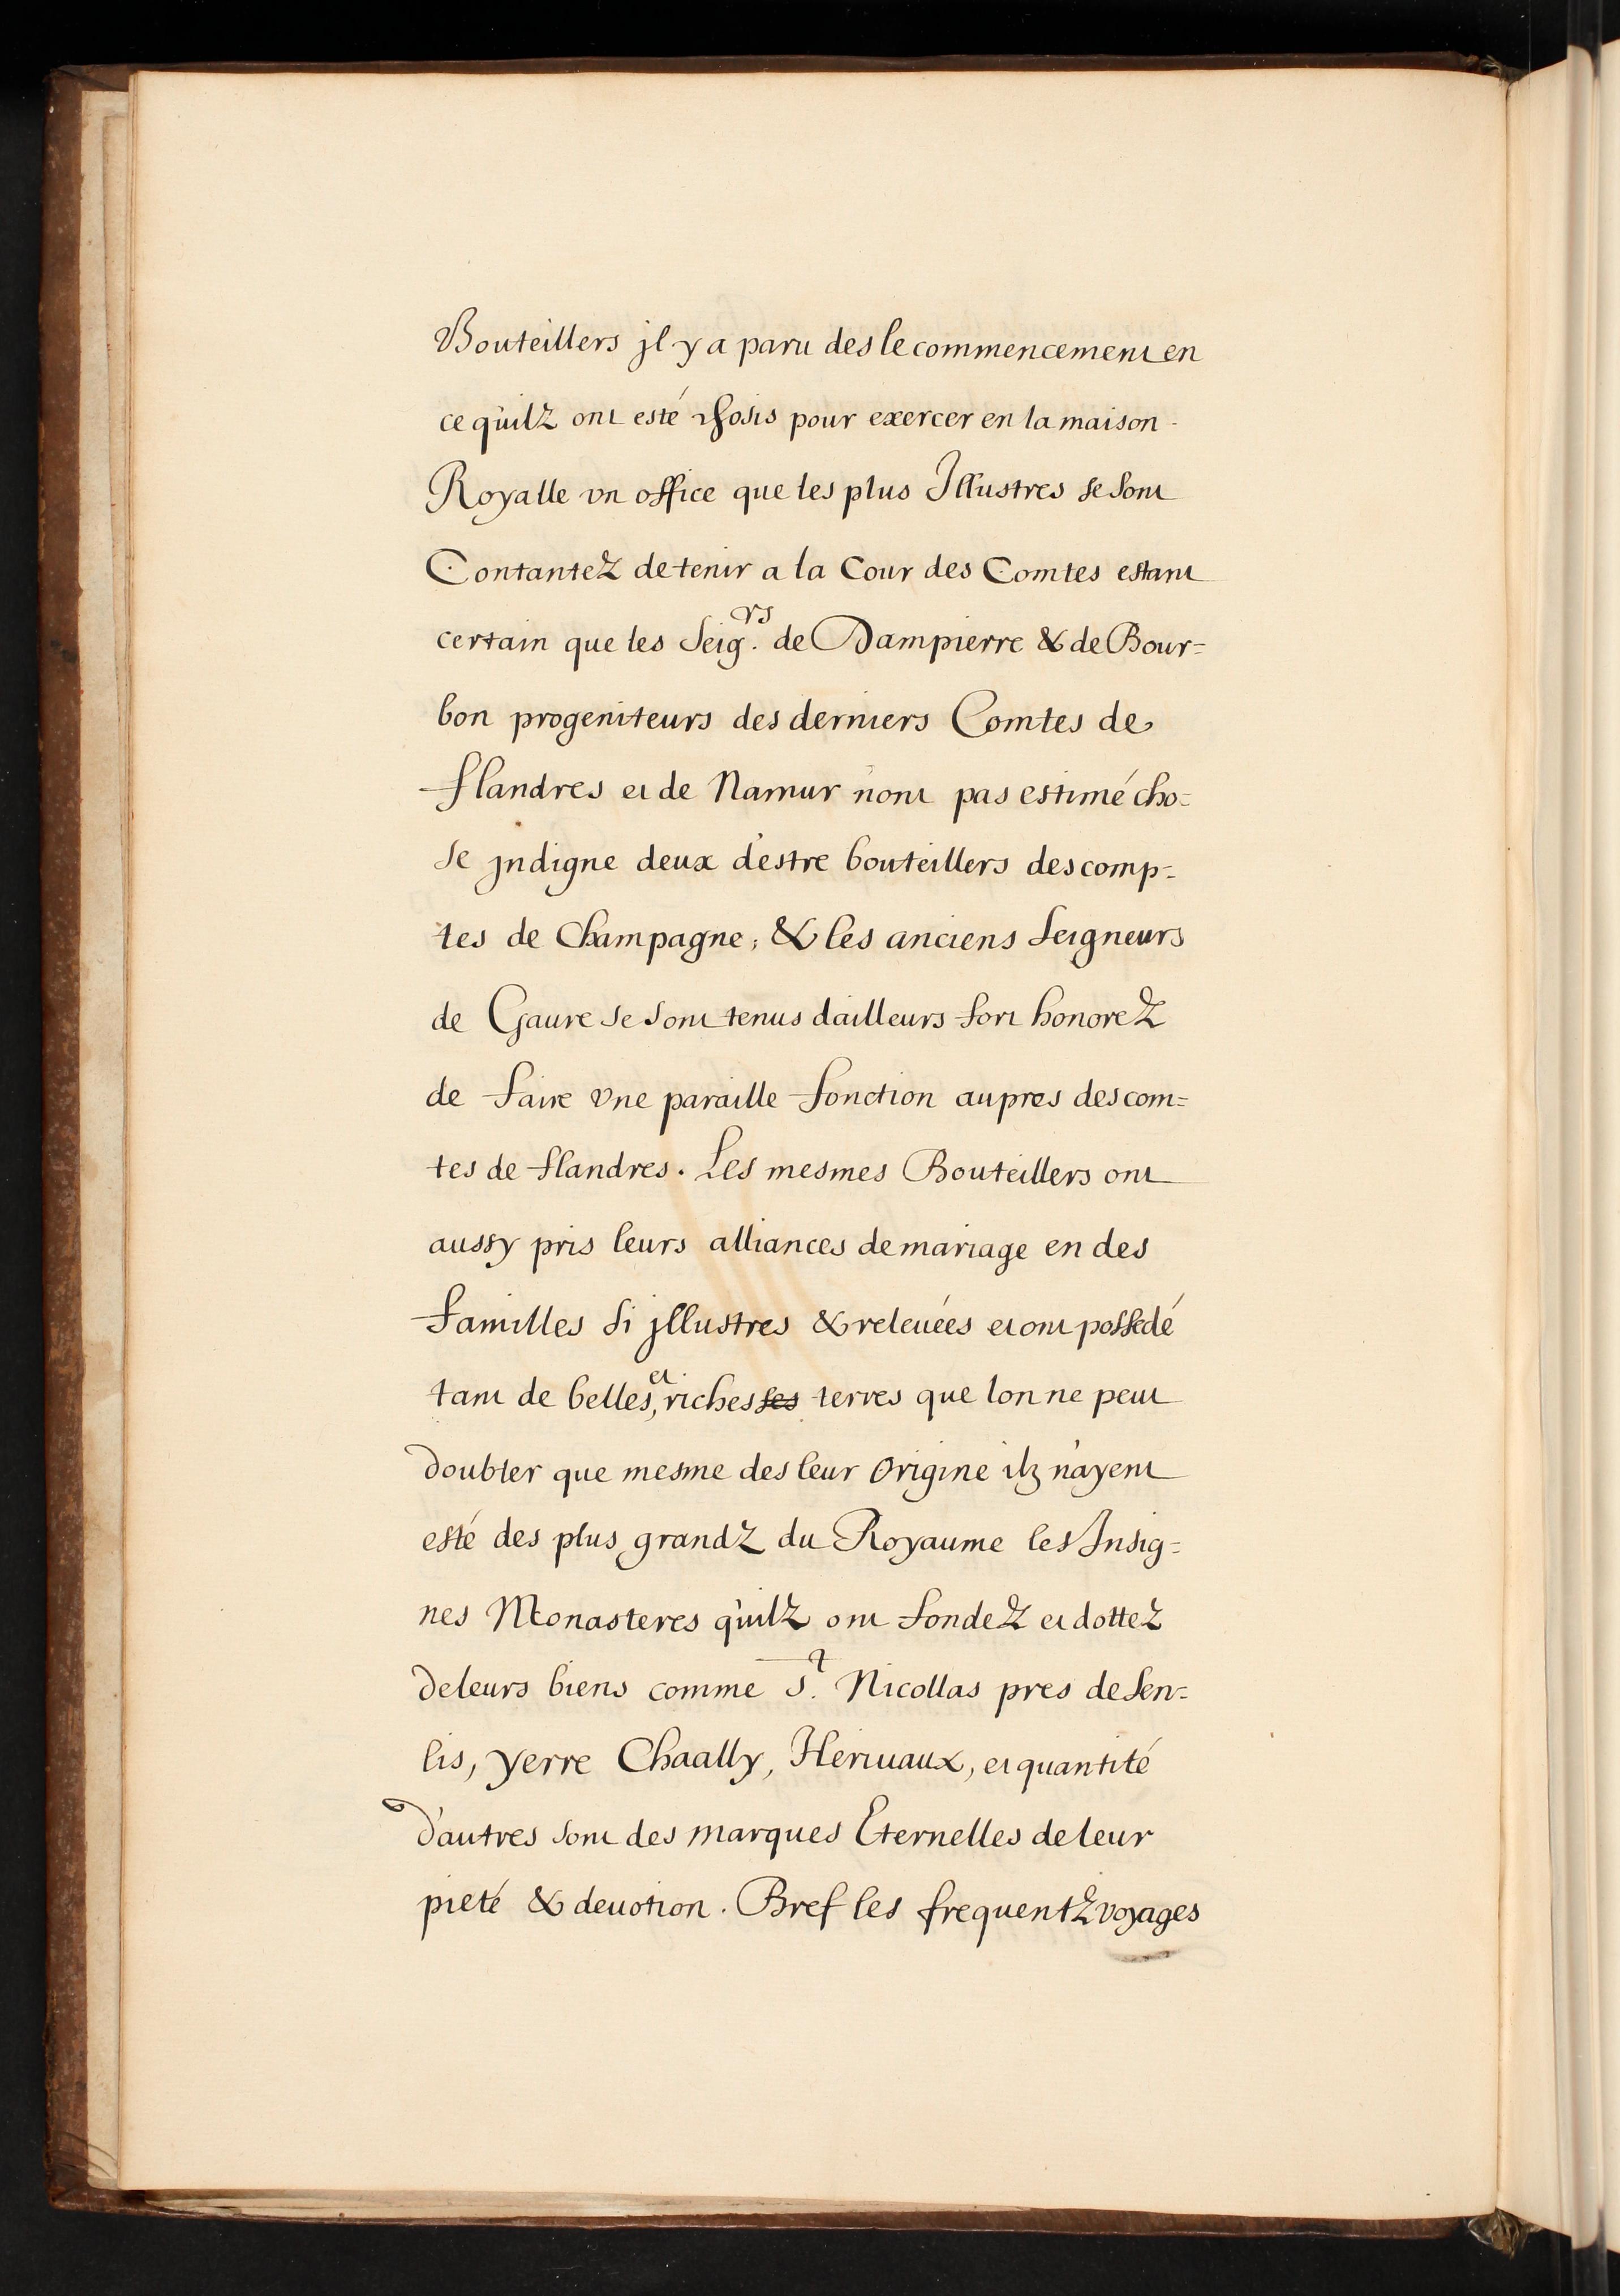 Bouteillers jl y a paru des le commencement en
ce quilz ont esté choisis pour exercer en la maison
Royalle vn office que les plus Illustres se sont
Contantez de tenir a la Cour des Comtes estant
certain que les Seig.rs de Dampierre & de Bour=
bon progeniteurs des derniers Comtes de
flandres et de Namur nont pas estimé cho=
se jndigne deux d'estre bouteillers des comp=
tes de Champagne; & les anciens Seigneurs
de Gaure se sont tenus dailleurs fort honorez
de faire vne paraille fonction aupres des com=
tes de flandres. Les mesmes Bouteillers ont
aussy pris leurs alliances de mariage en des
familles si jllustres & releuées et ont possedé
tant de belles, et richesses terres que lon ne peut
doubter que mesme des leur Origine ilz n'ayent
esté des plus grandz du Royaume les Insig=
nes Monasteres quilz ont fondez et dottez
de leurs biens comme St. Nicollas pres de Sen=
lis, yerre Chaally, Heriuaux, et quantité
d'autres sont des marques Eternelles de leur
pieté & deuotion. Bref les frequentz voyages